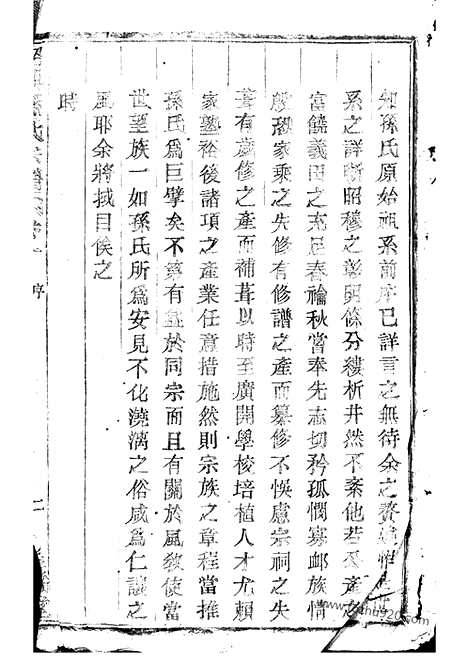 知孫氏原始祖系前序已詳言之無待余之贅述惟
系之詳晰昭穆之彰明條分縷析井然不紊他若公產之
富饒義田之充足春禴秋嘗奉先志切矜孤憫寡卹族情
殷恐家乘之失修有修譜之產而纂修不悞慮宗祠之失
葺有歲修之產而補葺以時至廣開學校培植人才尤賴
家塾裕後諸項之產業任意措施然則宗族之章程當推
孫氏爲巨擘矣不第有益於同宗而且有關於風敎使當
世望族一如孫氏所爲安見不化澆漓之俗咸爲仁讓之
風耶余將拭目俟之
時
孫氏宗譜
序
二